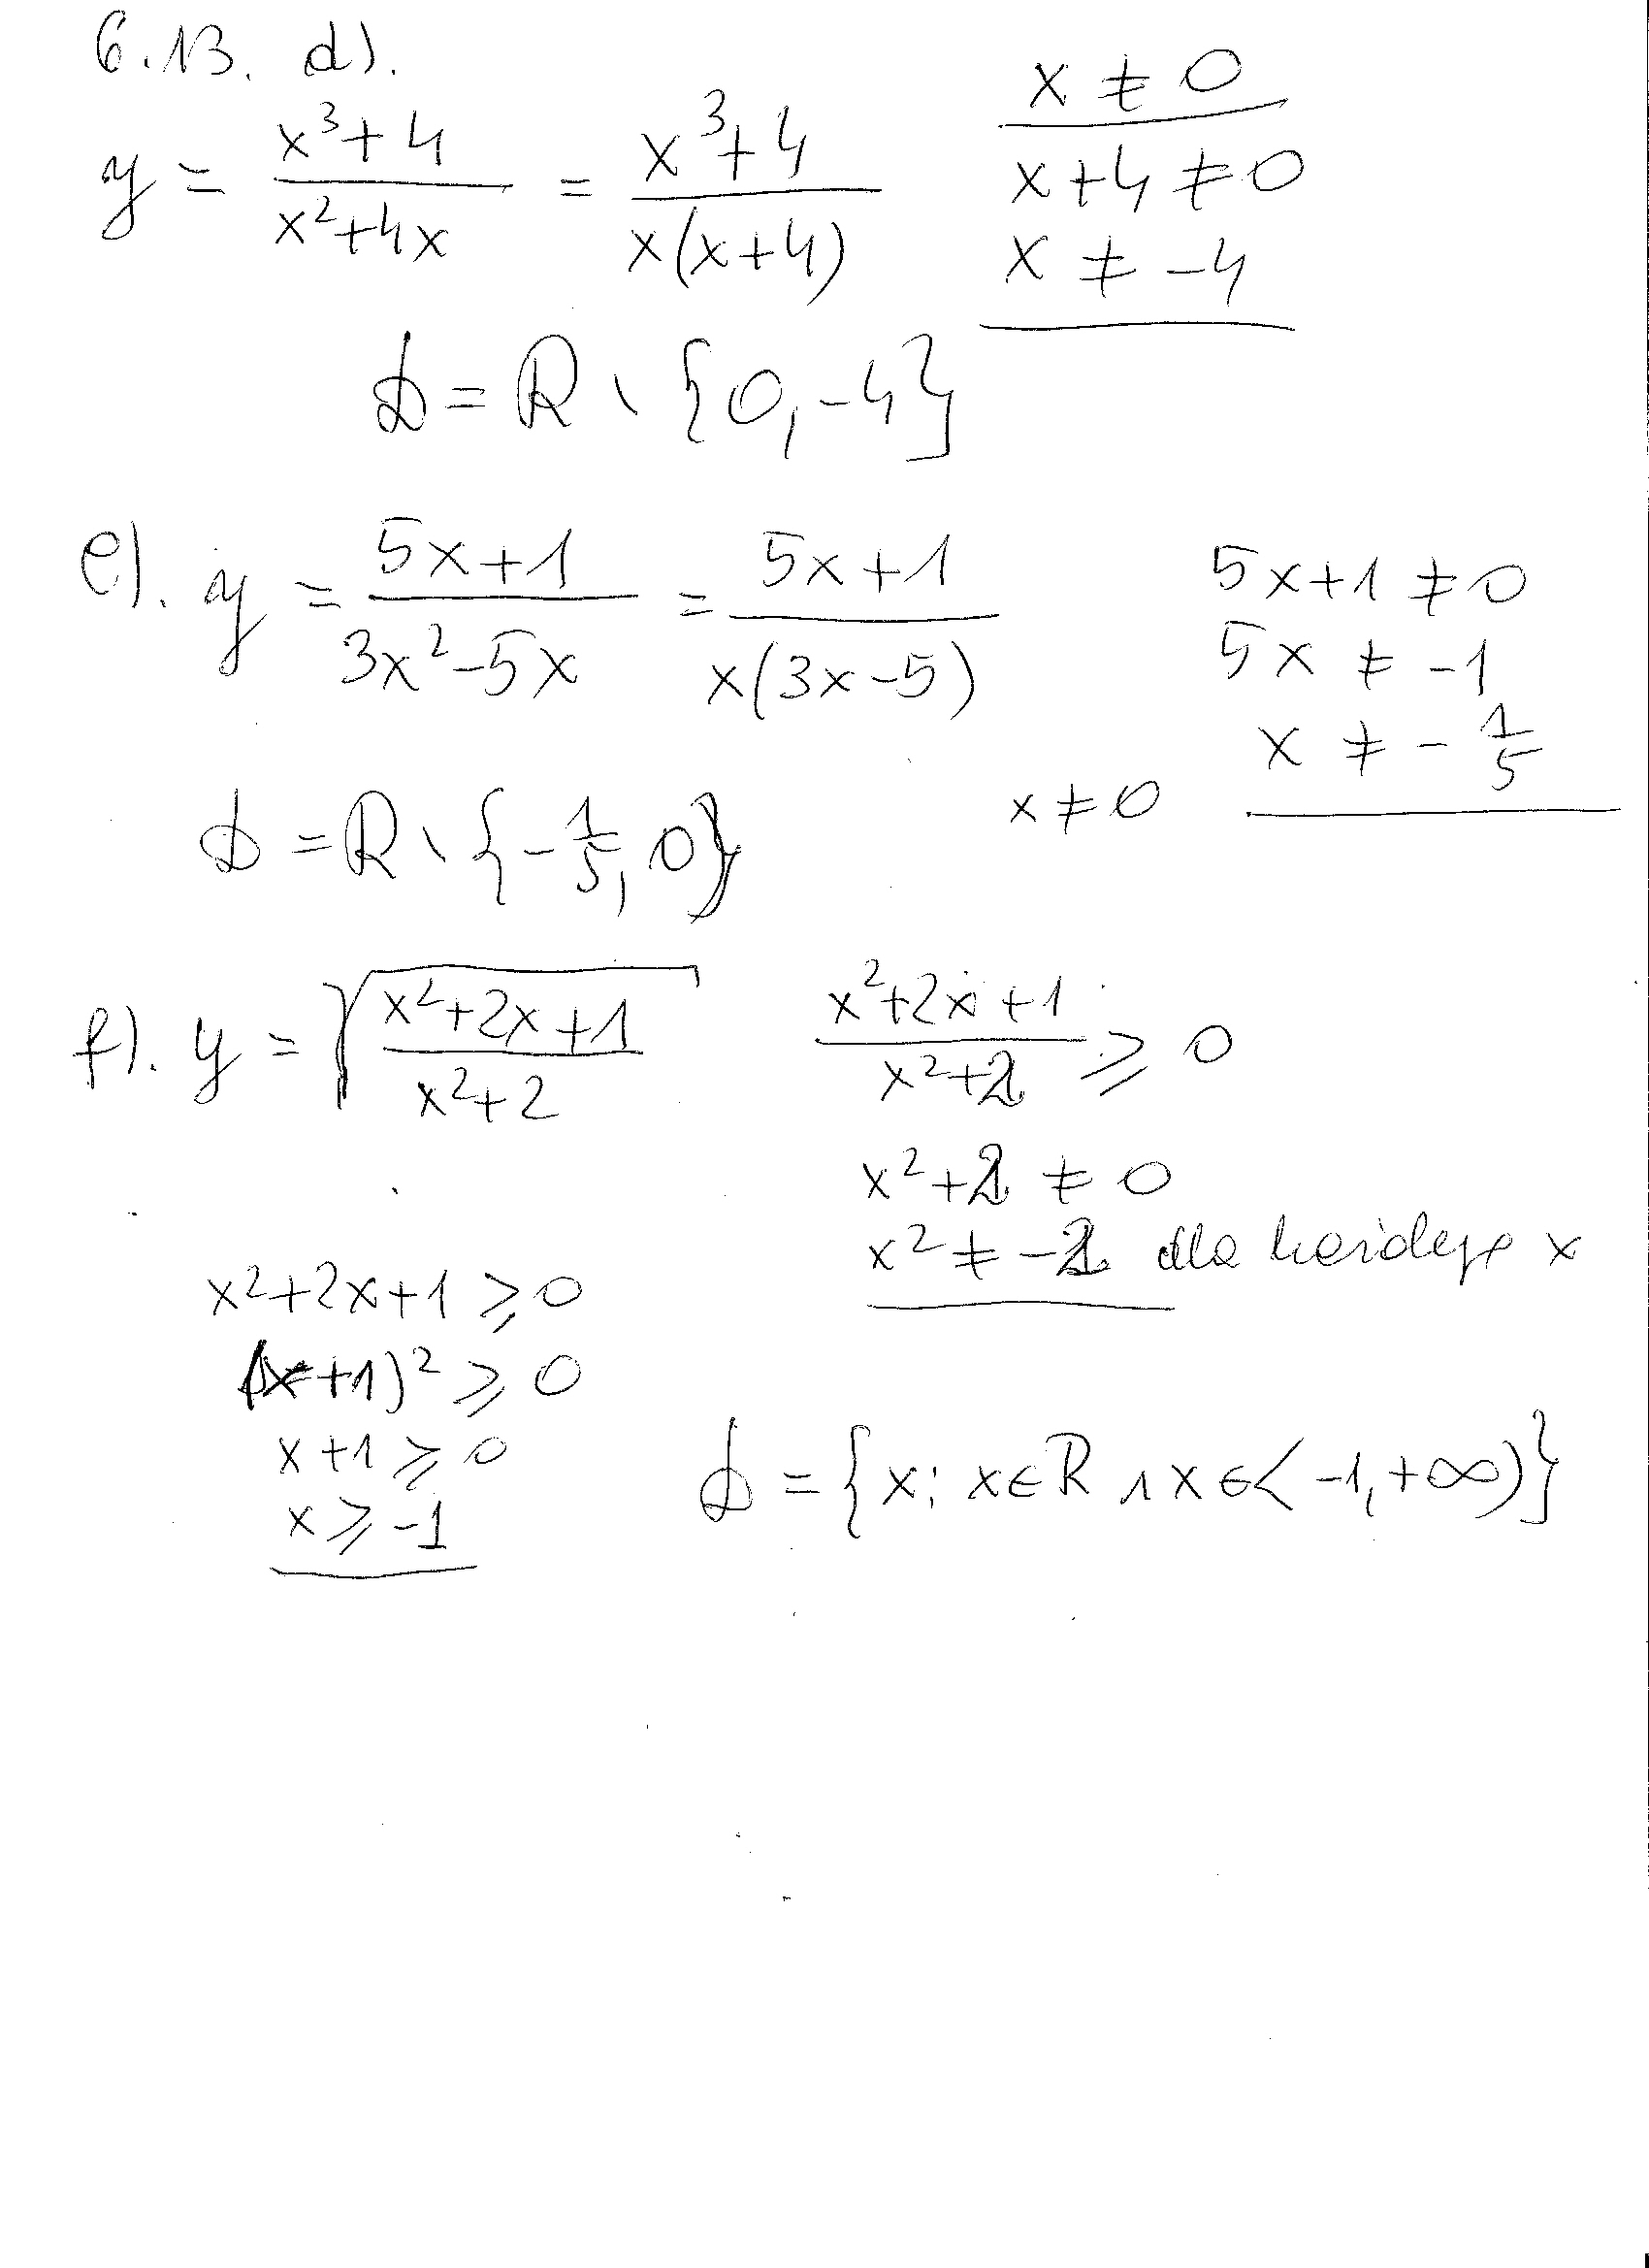 6.13. d).
y = (x³+4)/(x²+4x) = (x³+4)/(x(x+4))
x ≠ 0
x+4 ≠ 0
x ≠ -4
D = R \ {0, -4}
e). y = (5x+1)/(3x²-5x) = (5x+1)/(x(3x-5))
5x+1 ≠ 0
5x ≠ -1
x ≠ -1/5
x ≠ 0
D = R \ {-1/5, 0}
f). y = √((x²+2x+1)/(x²+2))
(x²+2x+1)/(x²+2) ≥ 0
x²+2 ≠ 0
x² ≠ -2 dla każdego x
x²+2x+1 ≥ 0
(x+1)² ≥ 0
x+1 ≥ 0
x ≥ -1
D = {x: x∈R ∧ x∈<-1, +∞)}